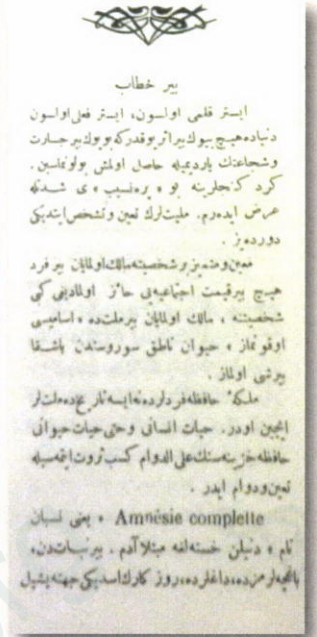 بیر خطاب
ایستر قلمی اولسون، ایستر فعلی اولسون
دنیاده هیچ بیوك بیر اثر بوقدر که بویوك بیر جسارت
و شجاعتك یاردیمیله حاصل اولمش بولونماسین.
کرد کنجلرینه بو « پره نسیب » ی شدتله
عرض ایده‌رم. ملیت‌لرك تعین و تشخص ایتدیکی
دورده‌یز.
معین و متمیز بر شخصیته مالك اولمایان بیر فرد
هیچ بیر قیمت اجتماعیه‌یی حائز اولمادیغی کبی
شخصیته ، مالك اولمایان بیر ملت ده ، اسامیسی
اوقونماز ، حیوان ناطق سوروسندن باشقا
بیرشی اولماز .
ملکهٔ حافظه فردلرده نه ایسه تاریخ ده ملت‌لر
ایچین اودر. حیات انسانی و حتی حیات حیوانی
حافظه خزینه‌سنك علی الدوام کسب ثروت ایتمه‌سیله
تعین و دوام ایدر .
Amnésie complette ، یعنی نسیان
تام ، دنیلن خسته‌لغه مبتلا آدم . بیر نباتدن،
باغچه‌لرمزده، داغلرده، روز کارك اسدیکی جهته یشیل